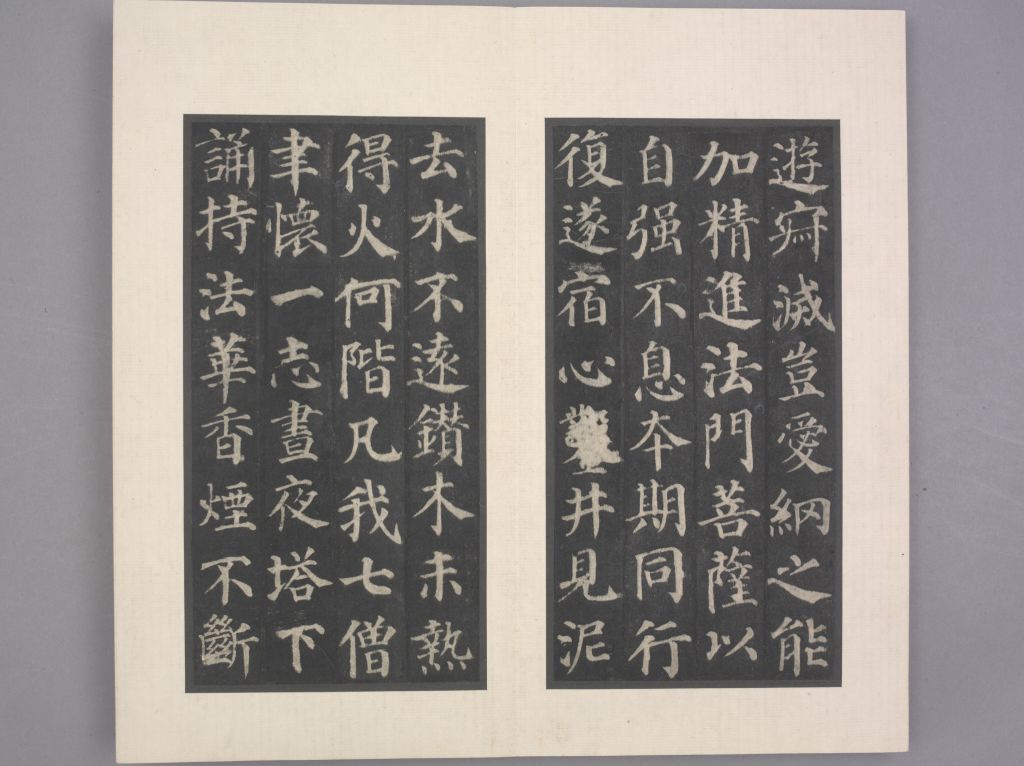 遊寂滅豈愛網之能
加精進法門菩薩以
自强不息本期同行
復遂宿心井見泥
去水不遠鑽木未熱
得火何階凡我七僧
聿懷一志晝夜塔下
誦持法華香煙不斷